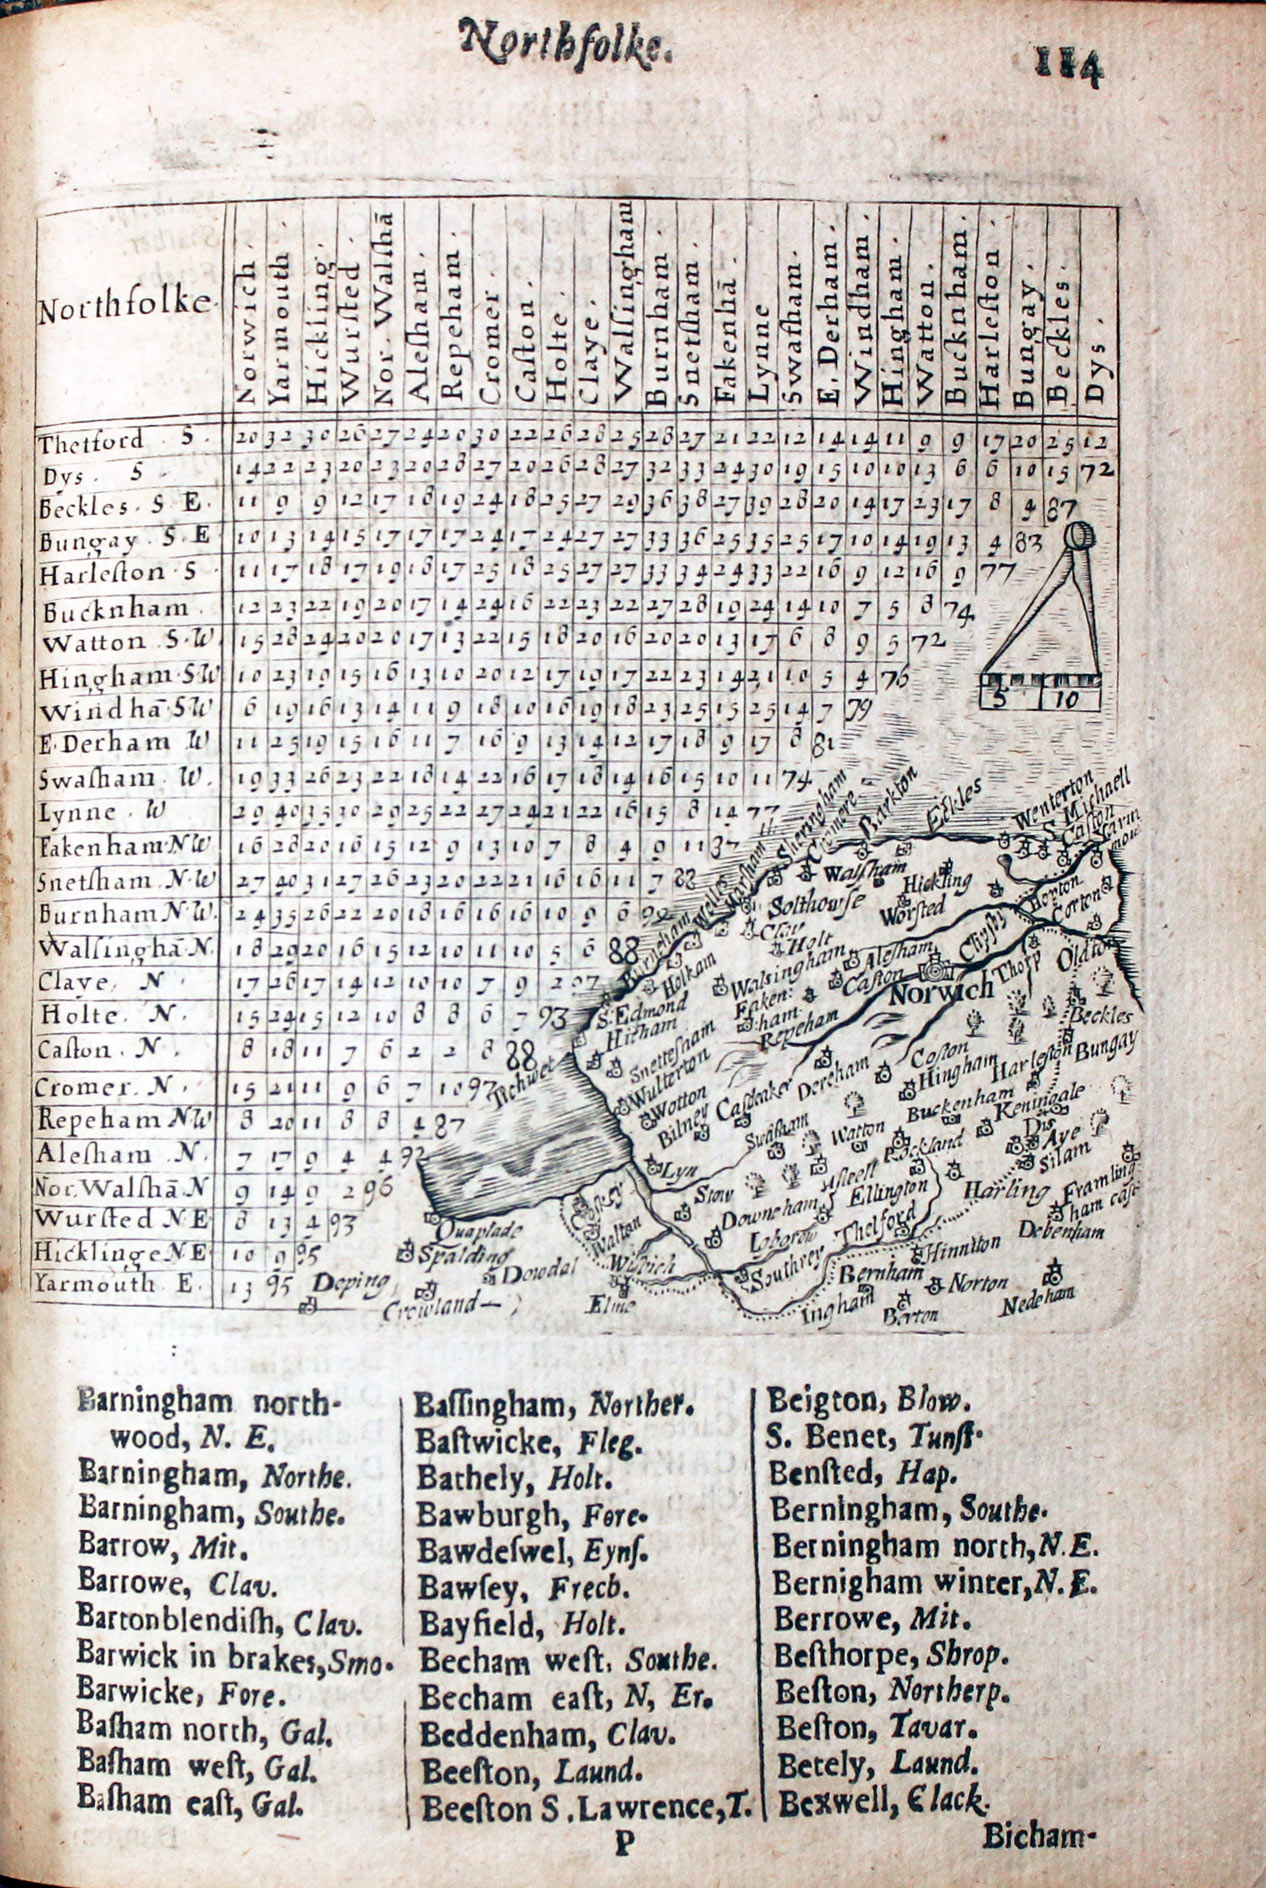 Northfolke.
114
Northfolke.
Norwich.
Yarmouth.
Hickling.
Wurſted.
Nor. Walſhā
Aleſham.
Repeham.
Cromer.
Caſton.
Holte.
Claye.
Walſingham
Burnham.
Snetſham.
Fakenhā.
Lynne
Swaſham.
E. Derham.
Windham.
Hingham.
Watton.
Bucknham.
Harleſton.
Bungay.
Beckles.
Dys.
Thetford. S. 20 32 30 26 27 24 20 30 22 26 28 25 28 27 21 22 12 14 14 11 9 9 17 20 25 12
Dys. S. 14 22 23 20 23 20 28 27 20 26 28 27 32 33 24 30 19 15 10 10 13 6 6 10 15 72
Beckles. S E. 11 9 9 12 17 18 19 24 18 25 27 29 36 38 27 39 28 20 14 17 23 17 8 4 87
Bungay. S. E 10 13 14 15 17 17 17 24 17 24 27 27 33 36 25 35 25 17 10 14 19 13 4 83
Harleſton. S 11 17 18 17 19 18 17 25 18 25 27 27 33 34 24 33 22 16 9 12 16 9 77
Bucknham. 12 23 22 19 20 17 14 24 16 22 23 22 27 28 19 24 14 10 7 5 8 74
Watton. S. W 15 28 24 20 20 17 13 22 15 18 20 16 20 20 13 17 6 8 9 5 72
Hingham. S. W 10 23 19 15 16 13 10 20 12 17 19 17 22 23 14 21 10 5 4 76
Windhā. S W 6 19 16 13 14 11 9 18 10 16 19 18 23 25 15 25 14 7 79
E. Derham W 11 25 19 15 16 11 7 16 9 13 14 12 17 18 9 17 8 81
Swaſham. W. 19 33 26 23 22 18 14 22 16 17 18 14 16 15 10 11 74
Lynne. W 29 40 35 30 29 25 22 27 24 21 22 16 15 8 14 77
Fakenham. N W 16 28 20 16 15 12 9 13 10 7 8 4 9 11 87
Snetſham. N. W 27 40 31 27 26 23 20 22 21 16 16 11 7 82
Burnham N. W. 24 35 26 22 20 18 16 16 16 10 9 6
Walſinghā. N. 18 29 20 16 15 12 10 11 10 5 6 88
Claye. N. 17 26 17 14 12 10 10 7 9 2 97
Holte. N. 15 24 15 12 10 8 8 6 7 93
Caſton. N. 8 18 11 7 6 2 2 8 88
Cromer. N. 15 21 11 9 6 7 10 97
Repeham N W 8 20 11 8 8 4 87
Aleſham. N. 7 17 9 4 4 92
Nor. Walſhā. N 9 14 9 2 96
Wurſted N. E 8 13 4 93
Hicklinge N E 10 9 95
Yarmouth. E. 13 95
5 10
Sheringham
Cromere
Barkton
Eckles
Wenterton
S. Michaell
Caſton
Yarmmouth
Wells
Walſham
Hickling
Solthowſe
Worſted
Clay
Holt
Clippſby
Boyton
Corton
Burneham
Holkam
Walsingham
Aleſham
Caſton
Norwich
Thorp
Oldton
S. Edmond
Hitham
Faken:
ham.
Repeham
Beckles
Bungay
Snetteſham
Wulterton
Coſton
Hingham
Harleſton
Wotton
Bilney
Caſtleaker
Dereham
Buckenham
Keningale
Swafham
Watton
Rockland
Dis
Aye
Silam
Lyn
Stow
Aſteell
Ellington
Harling
Framling
ham caſt
Downeham
Thetford
Debenham
Quaplade
Walton
Loborow
Hinnilton
Spalding
Dowdal
Wiſbich
Southrey
Bernham
Norton
Deping
Crowland
Elme
Ingham
Berton
Nedeham
Barningham north-
wood, N. E.
Barningham, Northe.
Barningham, Southe.
Barrow, Mit.
Barrowe, Clav.
Bartonblendiſh, Clav.
Barwick in brakes, Smo.
Barwicke, Fore.
Baſham north, Gal.
Baſham weſt, Gal.
Baſham eaſt, Gal.
Baſſingham, Norther.
Baſtwicke, Fleg.
Bathely, Holt.
Bawburgh, Fore.
Bawdeſwel, Eynſ.
Bawſey, Freeb.
Bayfield, Holt.
Becham weſt, Southe.
Becham eaſt, N, Er.
Beddenham, Clav.
Beeſton, Laund.
Beeſton S. Lawrence, T.
Beigton, Blow.
S. Benet, Tunſt.
Benſted, Hap.
Berningham, Southe.
Berningham north, N. E.
Bernigham winter, N. E.
Berrowe, Mit.
Beſthorpe, Shrop.
Beſton, Northerp.
Beſton, Tavar.
Betely, Laund.
Bexwell, Clack.
P
Bicham-